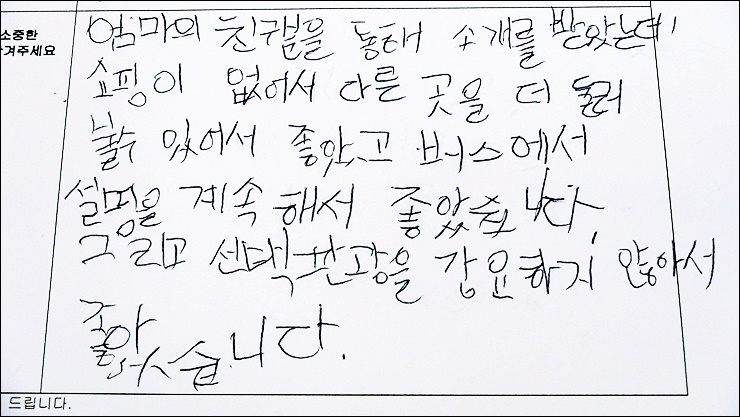 소중한
겨주세요
엄마의 친구분을 통해 소개를 받았는데
쇼핑이 없어서 다른 곳을 더 둘러
볼수 있어서 좋았고 버스에서
설명을 계속 해서 좋았습니다.
그리고 선택관광을 강요하지 않아서
좋았습니다.
드립니다.